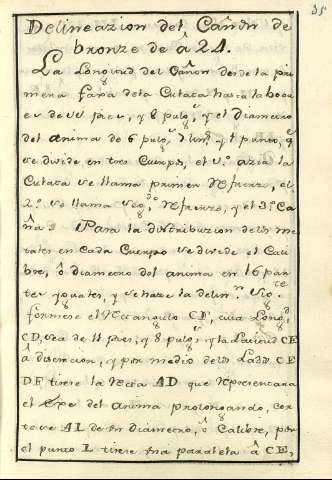 35
Delineazion del Cañon de
bronze de â 24.
La Longitud del Cañon desde la pri
mera faxa dela Culata hasta la boca
es de 11 pies, y 8 pulg.s y el diametro
del anima de 6 pulg.s lin.s y 1 punto, q.e
se divide en tres Cuerpos, el 1.º azia la
Culata se llama primer Refuerzo, el
2.º se llama seg.do Refuerzo, y el 3.º Ca
ña. Para la distribuzion de los me
tales en cada Cuerpo se divide el Cali
bre, ô diametro del anima en 16 par
tes yguales, y se haze la delin.n sig.te
formese el Rectangulo CF, cuia Long.d
CD, sea de 11 pies, y 8 pulg.s y la Latitud CE
â discrecion, y por medio de los Lados CE
DF tirese la Recta AD que representara
el Exe del anima prolongando, cor
tese AL de un diametro, ô Calibre, por
el punto L tirese una paralela â CE,